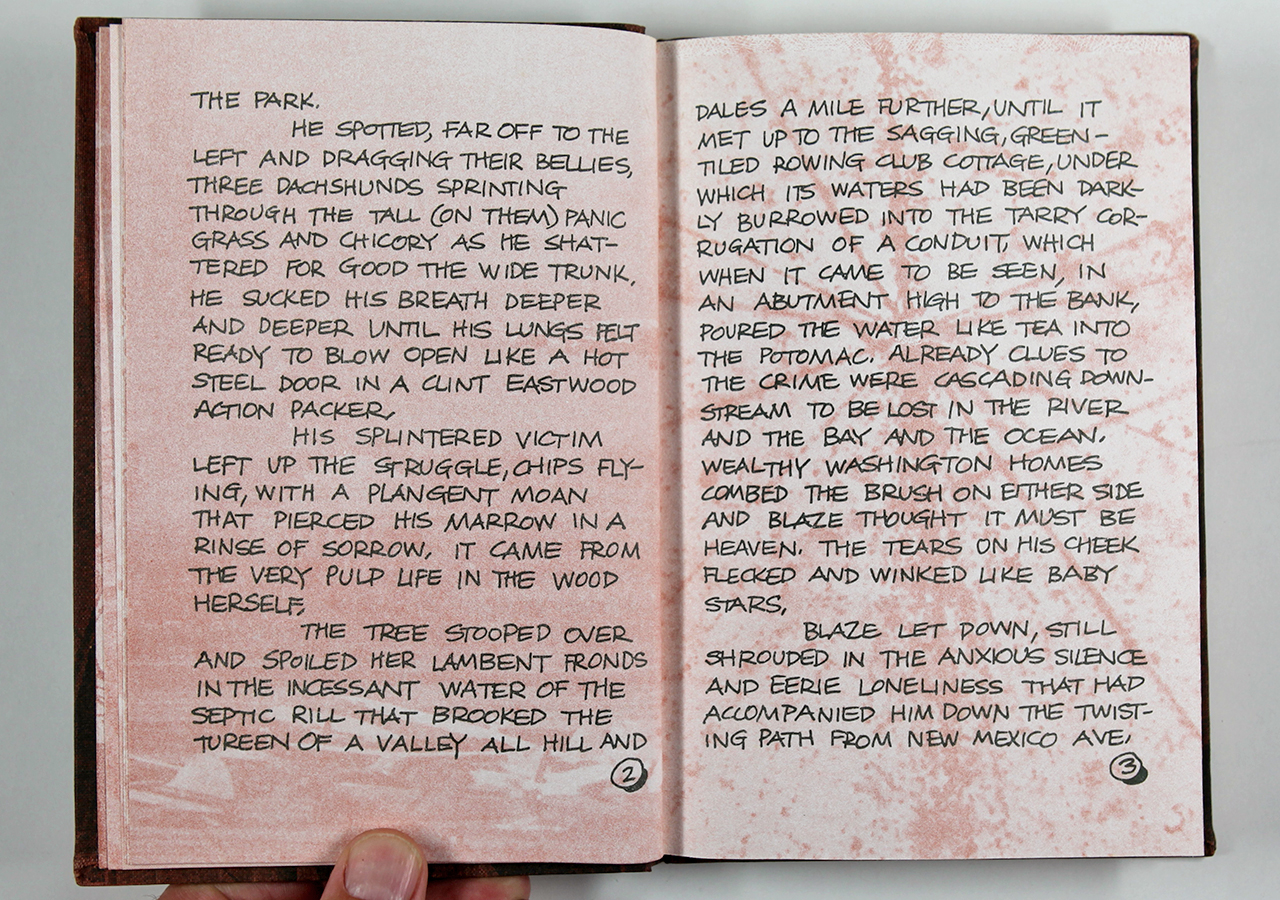 THE PARK.
HE SPOTTED, FAR OFF TO THE
LEFT AND DRAGGING THEIR BELLIES,
THREE DACHSHUNDS SPRINTING
THROUGH THE TALL (ON THEM) PANIC
GRASS AND CHICORY AS HE SHAT-
TERED FOR GOOD THE WIDE TRUNK.
HE SUCKED HIS BREATH DEEPER
AND DEEPER UNTIL HIS LUNGS FELT
READY TO BLOW OPEN LIKE A HOT
STEEL DOOR IN A CLINT EASTWOOD
ACTION PACKER.
HIS SPLINTERED VICTIM
LEFT UP THE STRUGGLE, CHIPS FLY-
ING, WITH A PLANGENT MOAN
THAT PIERCED HIS MARROW IN A
RINSE OF SORROW. IT CAME FROM
THE VERY PULP LIFE IN THE WOOD
HERSELF.
THE TREE STOOPED OVER
AND SPOILED HER LAMBENT FRONDS
IN THE INCESSANT WATER OF THE
SEPTIC RILL THAT BROOKED THE
TUREEN OF A VALLEY ALL HILL AND
2
DALES A MILE FURTHER, UNTIL IT
MET UP TO THE SAGGING, GREEN-
TILED ROWING CLUB COTTAGE, UNDER
WHICH ITS WATERS HAD BEEN DARK-
LY BURROWED INTO THE TARRY COR-
RUGATION OF A CONDUIT, WHICH
WHEN IT CAME TO BE SEEN, IN
AN ABUTMENT HIGH TO THE BANK,
POURED THE WATER LIKE TEA INTO
THE POTOMAC. ALREADY CLUES TO
THE CRIME WERE CASCADING DOWN-
STREAM TO BE LOST IN THE RIVER
AND THE BAY AND THE OCEAN.
WEALTHY WASHINGTON HOMES
COMBED THE BRUSH ON EITHER SIDE
AND BLAZE THOUGHT IT MUST BE
HEAVEN. THE TEARS ON HIS CHEEK
FLECKED AND WINKED LIKE BABY
STARS.
BLAZE LET DOWN, STILL
SHROUDED IN THE ANXIOUS SILENCE
AND EERIE LONELINESS THAT HAD
ACCOMPANIED HIM DOWN THE TWIST-
ING PATH FROM NEW MEXICO AVE.
3